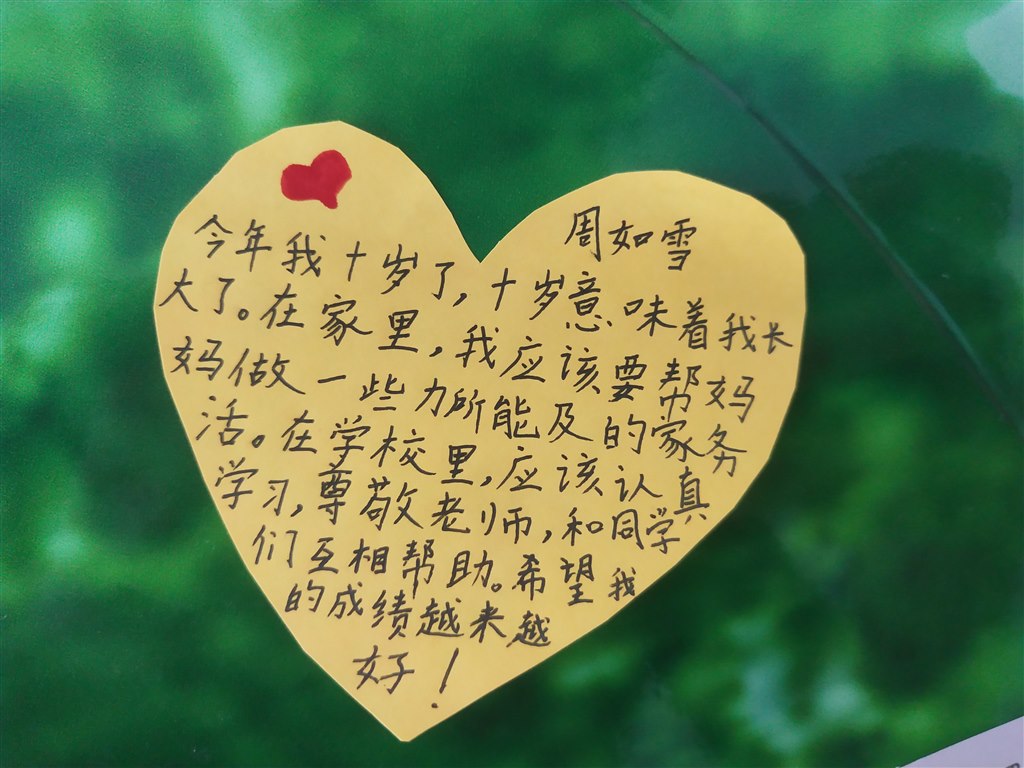 周如雪
今年我十岁了,十岁意味着我长
大了。在家里,我应该要帮妈
妈做一些力所能及的家务
活。在学校里,应该认真
学习,尊敬老师,和同学
们互相帮助。希望我
的成绩越来越
好!